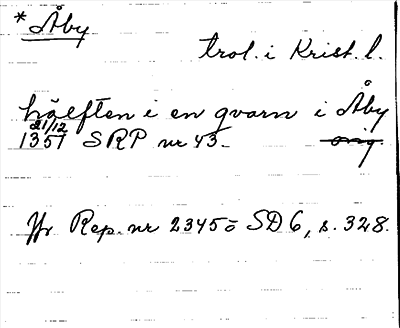 * Åby
trol. i Krist. l.
hälften i en qvarn i Åby
21/12
1351 SRP nr 43. orig
Jfr Rep. nr 2345 = SD 6, s. 328.